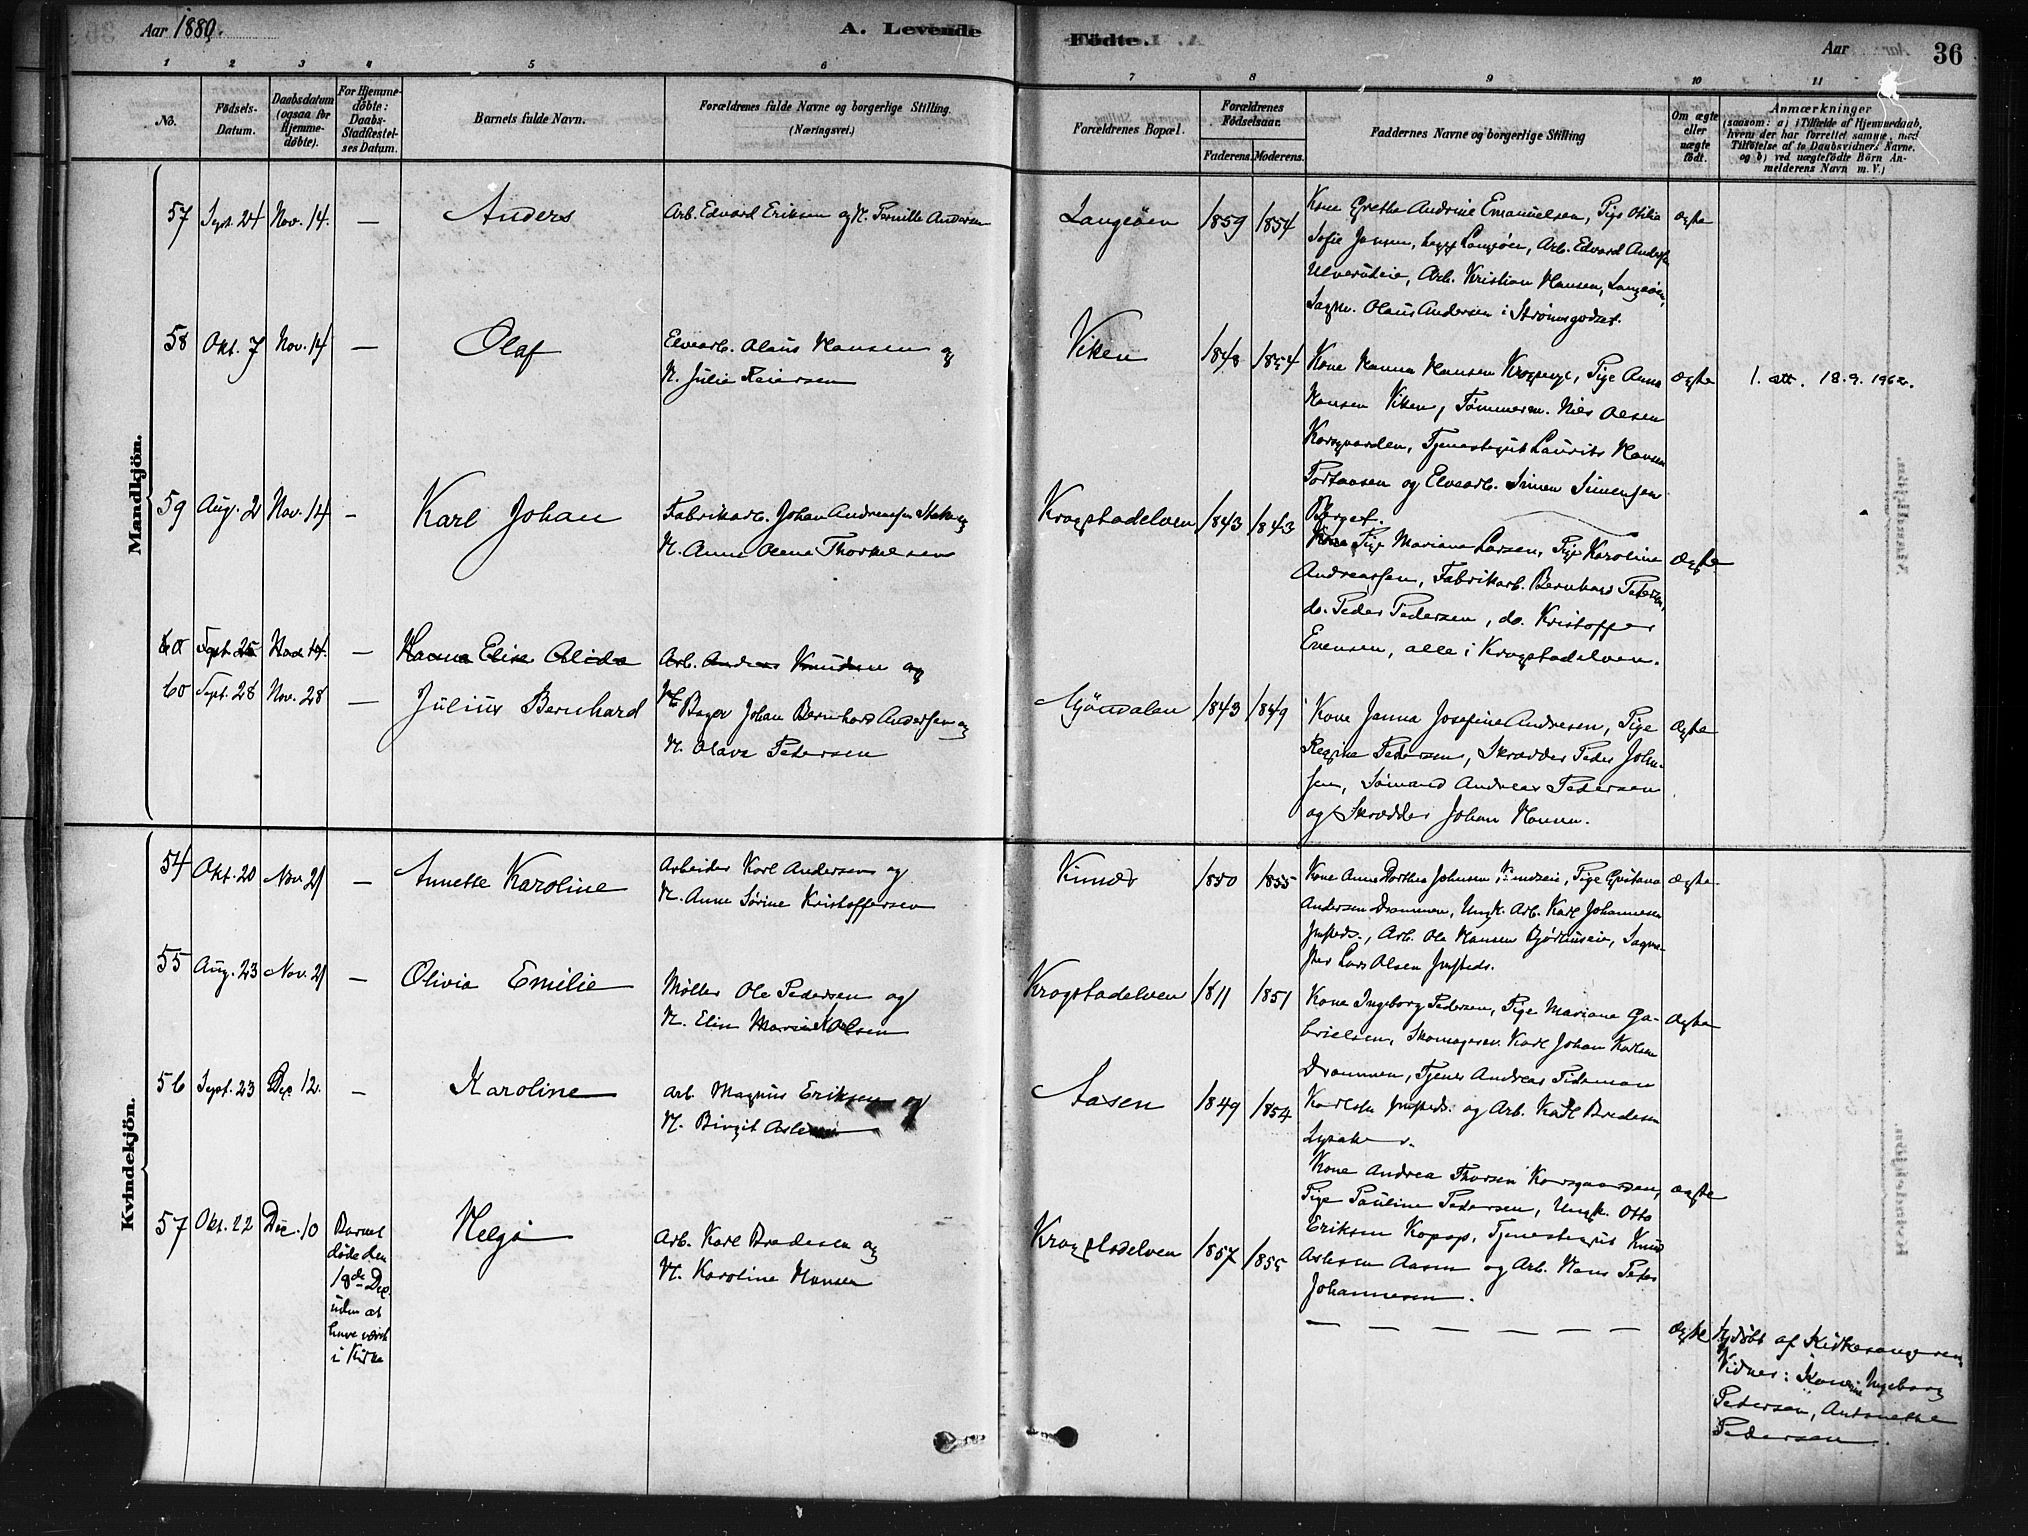 Aar 1880.
A. Levende
Födte.
Aar
36
1 2 3 4 5 6 7 8 9 10 11
No.
Födsels-Datum.
Daabsdatum (ogsaa for Hjemmedøbte).
For Hjemmedøbte: Daabs-Stadfæstelses Datum.
Barnets fulde Navn.
Forældrenes fulde Navne og borgerlige Stilling.
(Næringsvei.)
Forældrenes Bopæl.
Forældrenes Födselsaar.
Faderens.
Moderens.
Faddernes Navne og borgerlige Stilling
Om ægte eller uægte født.
Anmærkninger
(saasom: a) i Tilfælde af Hjemmedaab,
hvem der har forrettet samme, med
Tilføielse af to Daabsvidners Navne.
og b) ved uægtefödte Börn An-
melderens Navn m. V.)
Mandkjön.
57 Sept. 24 Nov. 14. — Anders
Arb. Edvard Eriksen og H. Pernille Andersen
Langøen 1859 1854
Kone Grethe Andrine Emanuelsen, Pige Otilia
Sofie Jensen, Langøen, Arb. Edvard Andersen
Arb. Kristian Hansen, Langøen,
Olaus Andersen i Strømsgodset.
Ægte
58 Okt. 7 Nov. 14 — Olaf
Elvearb. Olaus Hansen og
H. Julie Reiersen
Viken 1848 1854
Kone Hanna Hansen Pige Anna
Hansen Viken, Tømmerm. Nils Olsen
Korsgaarden, Tjenestegut Laurits Hansen
og Elvearb. Simen Simensen
Berget.
Ægte
1. att. 18.9.1962.
59 Aug. 2 Nov. 14 — Karl Johan
Fabrikarb. Johan Andreassen og
H. Anne Olene Thorkelsen
Krogstadelven 1843 1843
Kone Pige Mariane Larsen, Pige Karoline
Andreassen, Fabrikarb. Bernhard Petersen,
do. Peder Pedersen, do. Kristoffer
Evensen, alle i Krogstadelven.
Ægte
60 Sept. 25 Nov 14. — Hanna Elise Alida
Arb. Andreas Knudsen og
60 Sept. 28 Nov. 28 — Julius Bernhard
Bager Johan Bernhard Andersen og
H. Olava Pedersen
Mjøndalen 1843 1849
Kone Janna Josefine Andresen, Pige
Regine Pedersen, Skrædder Peder John-
sen, Sømand Andreas Pedersen
og Skrædder Johan Hansen.
Ægte
Kvindekjön.
54 Okt. 20 Nov. 21 — Annette Karoline
Arbeider Karl Andersen og
H. Anne Sørine Kristoffersen
1850 1855
Kone Anne Dorthea Johnsen Pige Gustava
Andersen Drammen, Ungk. Arb. Karl Johannesen
Arb. Ole Hansen
Lars Olsen
Ægte
55 Aug. 23 Nov. 21 — Olivia Emilie
Møller Ole Pedersen og
H. Elin Marie Olsen
Krogstadelven 1811 1851
Kone Ingeborg Pedersen, Pige Mariane Ga-
brielsen, Skomagersv. Karl Johan Karlsen
Drammen, Tjener Andreas Tideman
Karlsen og Arb. Karl Bredesen
Ægte
56 Sept. 23 Dec. 12. — Karoline
Arb. Magnus Eriksen og
H. Birgit
Aasen 1849 1854
Kone Andrea Thorsen Korsgaarden,
Pige Pauline Pedersen, Ungk. Otto
Eriksen Tjenestegut Knud
Aslesen Aasen og Arb. Hans Peder
Johannesen.
Ægte
57 Okt. 22 Dec. 10
Barnet
døde den
18de Dec.
uden at
have været
i Kirke
Helga
Arb. Karl Bredesen og
H. Karoline Hansen
Krogstadelven 1857 1855
— — — — — —
Ægte
Hjdøbt af Kirkesangeren
Vidner: Konerne Ingeborg
Pedersen, Antonette
Pedersen.